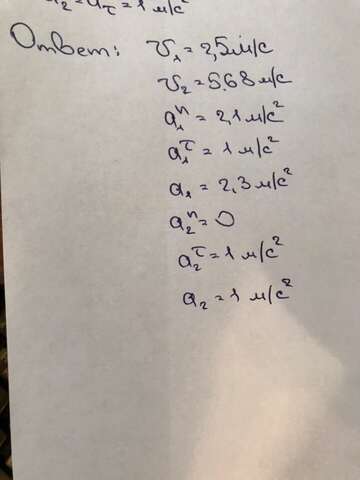 a₂ = a_τ = 1 м/с²
Ответ: v₁ = 2,5 м/с
v₂ = 5.68 м/с
a₁ⁿ = 2,1 м/с²
a₁^τ = 1 м/с²
a₁ = 2,3 м/с²
a₂ⁿ = 0
a₂^τ = 1 м/с²
a₂ = 1 м/с²